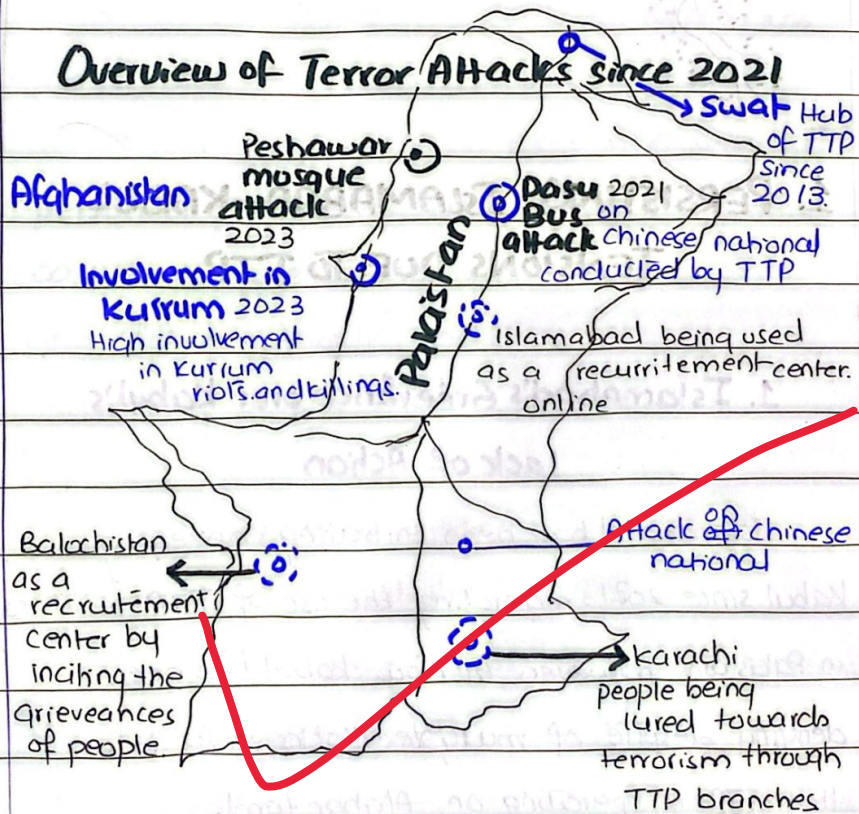 Overview of Terror Attacks since 2021
Swat Hub
of TTP
since
2013.
Peshawar
mosque
attack
2023
Afghanistan
Dasu 2021
Bus on
attack Chinese national
conducted by TTP
Involvement in
Kurrum 2023
High involvement
in Kurrum
riots.and killings.
Pakistan
Islamabad being used
as a recurritement center.
online
Attack of Chinese
national
Balochistan
as a
recruitement
center by
inciting the
grieveances
of people.
Karachi
people being
lured towards
terrorism through
TTP branches